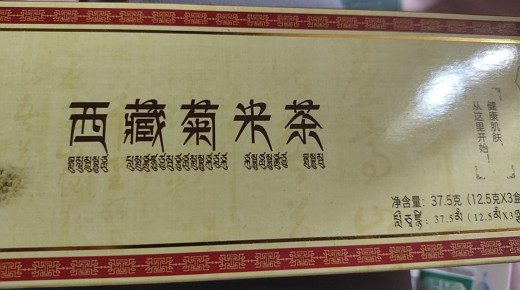 西藏菊米茶
健康肌肤，
从这里开始！
净含量：37.5克（12.5克X3盒
37.5 (12.5 X3